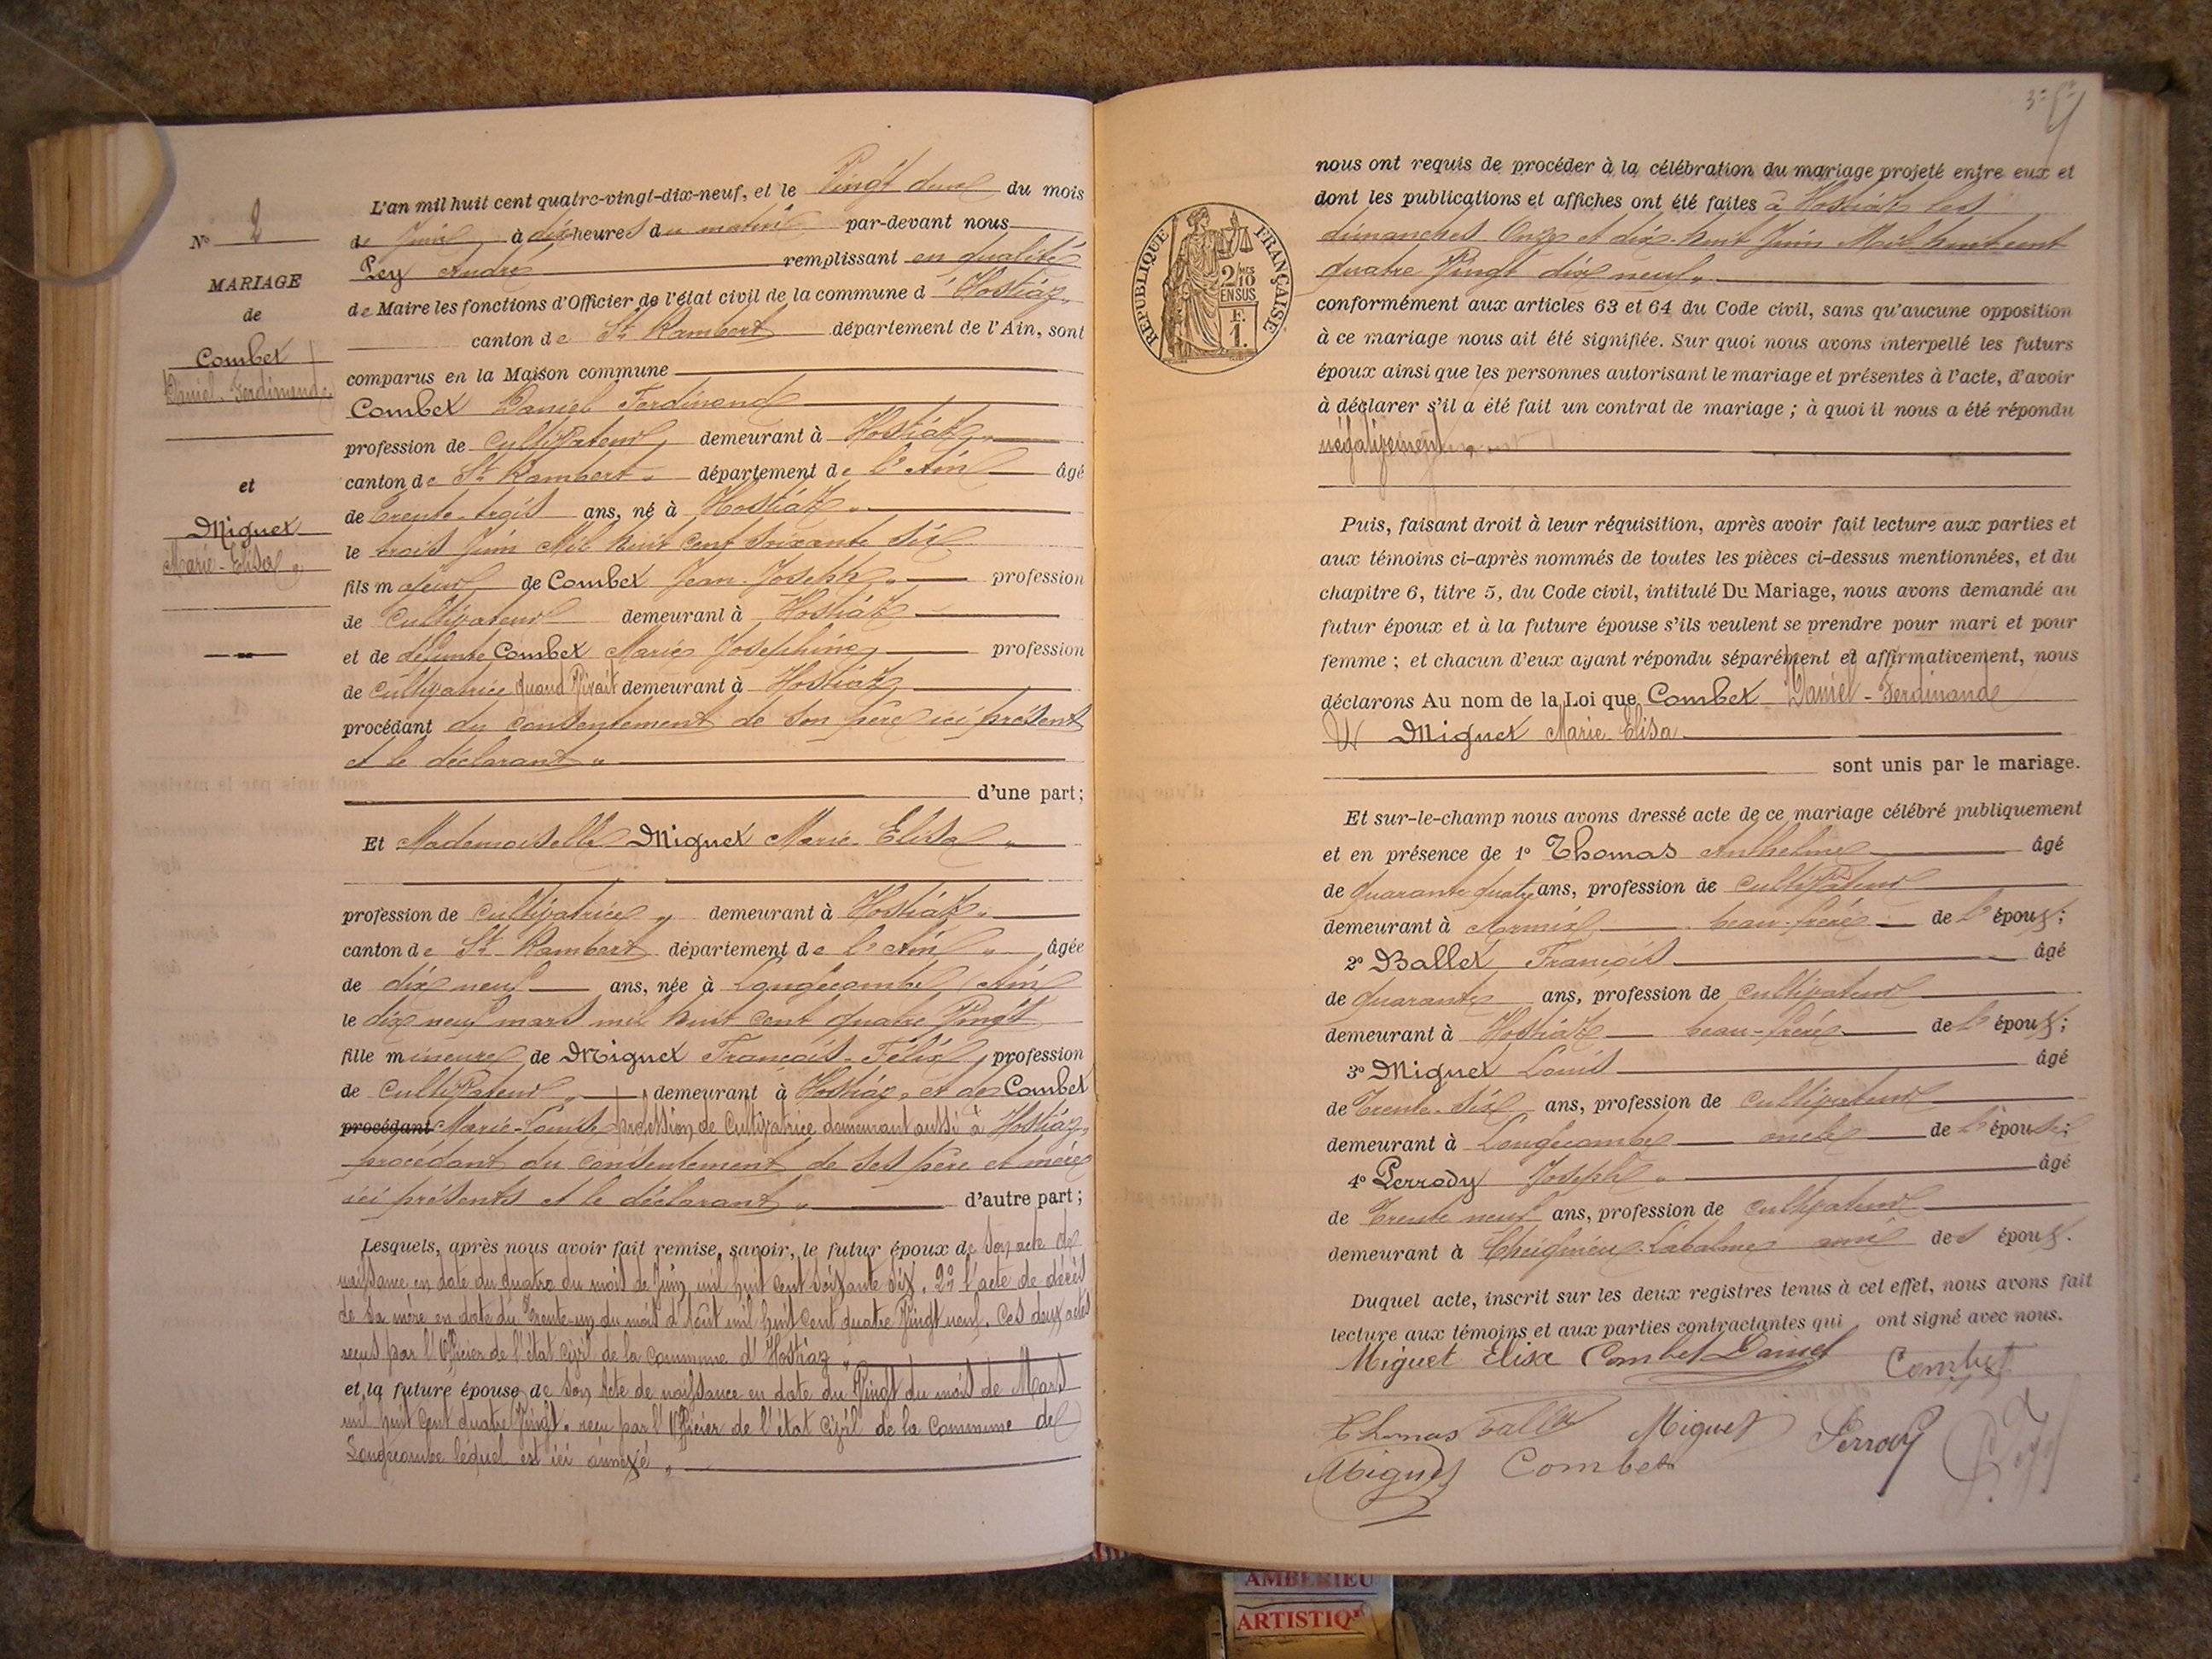 N° 2
MARIAGE
de
Combet
Daniel-Ferdinande
et
Miguet
Marie-Elisa
L'an mil huit cent quatre-vingt-dix-neuf, et le Vingt deux du mois
de Juin à dix heures du matin par-devant nous
Pey André remplissant en qualité
de Maire les fonctions d'Officier de l'état civil de la commune d'Hostiaz
canton de St Rambert département de l'Ain, sont
comparus en la Maison commune
Combet Daniel Ferdinand
profession de cultivateur demeurant à Hostiaz
canton de St Rambert département de l'Ain âgé
de trente-trois ans, né à Hostiaz
le trois Juin Mil huit cent soixante six
fils majeur de Combet Jean-Joseph profession
de cultivateur demeurant à Hostiaz
et de défunte Combet Marie Josephine profession
de cultivatrice quand Vivait demeurant à Hostiaz
procédant du consentement de son père ici présent
et le déclarant
d'une part;
Et Mademoiselle Miguet Marie-Elisa
profession de cultivatrice demeurant à Hostiaz
canton de St Rambert département de l'Ain âgée
de dix neuf ans, née à Longecombe Ain
le dix neuf mars mil huit cent quatre Vingt
fille mineure de Miguet François-Félix profession
de cultivateur demeurant à Hostiaz, et de Combet
procédant Marie-Louise profession de Cultivatrice demeurant aussi à Hostiaz,
procédant du consentement de ses père et mère
ici présents et le déclarant d'autre part;
Lesquels, après nous avoir fait remise, savoir, le futur époux de son acte de
naissance en date du quatre du mois de Juin mil huit cent soixante six. 2° l'acte de décès
de sa mère en date du trente-un du mois d'Août mil huit cent quatre Vingt neuf. Ces deux actes
reçus par l'Officier de l'état civil de la Commune d'Hostiaz
et la future épouse de son Acte de naissance en date du Vingt du mois de Mars
mil huit cent quatre Vingt. reçu par l'Officier de l'état civil de la Commune de
Longecombe lequel est ici annexé
nous ont requis de procéder à la célébration du mariage projeté entre eux et
dont les publications et affiches ont été faites à Hostiaz les
dimanches Onze et dix-huit Juin Mil huit cent
quatre Vingt dix neuf
RÉPUBLIQUE FRANÇAISE
2/10 EN SUS
F.
1.
conformément aux articles 63 et 64 du Code civil, sans qu'aucune opposition
à ce mariage nous ait été signifiée. Sur quoi nous avons interpellé les futurs
époux ainsi que les personnes autorisant le mariage et présentes à l'acte, d'avoir
à déclarer s'il a été fait un contrat de mariage; à quoi il nous a été répondu
négativement
Puis, faisant droit à leur réquisition, après avoir fait lecture aux parties et
aux témoins ci-après nommés de toutes les pièces ci-dessus mentionnées, et du
chapitre 6, titre 5, du Code civil, intitulé Du Mariage, nous avons demandé au
futur époux et à la future épouse s'ils veulent se prendre pour mari et pour
femme; et chacun d'eux ayant répondu séparément et affirmativement, nous
déclarons Au nom de la Loi que Combet Daniel-Ferdinande
Et Miguet Marie-Elisa
sont unis par le mariage.
Et sur-le-champ nous avons dressé acte de ce mariage célébré publiquement
et en présence de 1° Thomas Anthelme âgé
de quarante quatre ans, profession de cultivateur
demeurant à Armix beau-frère de l'époux;
2° Ballet François âgé
de quarante ans, profession de cultivateur
demeurant à Hostiaz beau-frère de l'époux;
3° Miguet Louis âgé
de Trente-six ans, profession de cultivateur
demeurant à Longecombe oncle de l'épouse;
4° Perrody Joseph âgé
de Trente neuf ans, profession de cultivateur
demeurant à Cheignieu-Labalme ami des époux.
Duquel acte, inscrit sur les deux registres tenus à cet effet, nous avons fait
lecture aux témoins et aux parties contractantes qui ont signé avec nous.
Miguet Elisa Combet Daniel Combet
Thomas Ballet Miguet Perrody Pey
Miguet Combet
AMBERIEU
ARTISTIQ